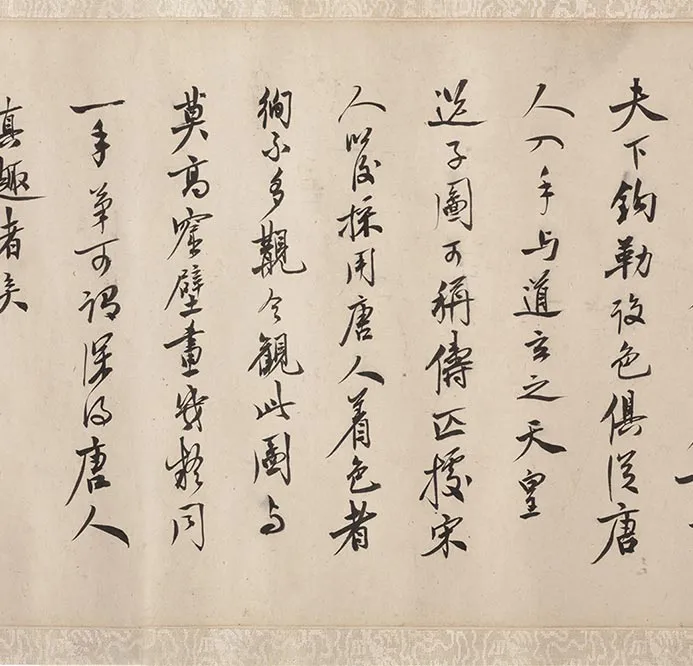 天下鈎勒設色俱從唐
人入手与道玄之天皇
送子圖可稱傳匹據宋
人以後採用唐人着色者
絢不多觀今観此圖与
莫高窟壁畫幾疑同
一手筆可謂深得唐人
真趣者矣